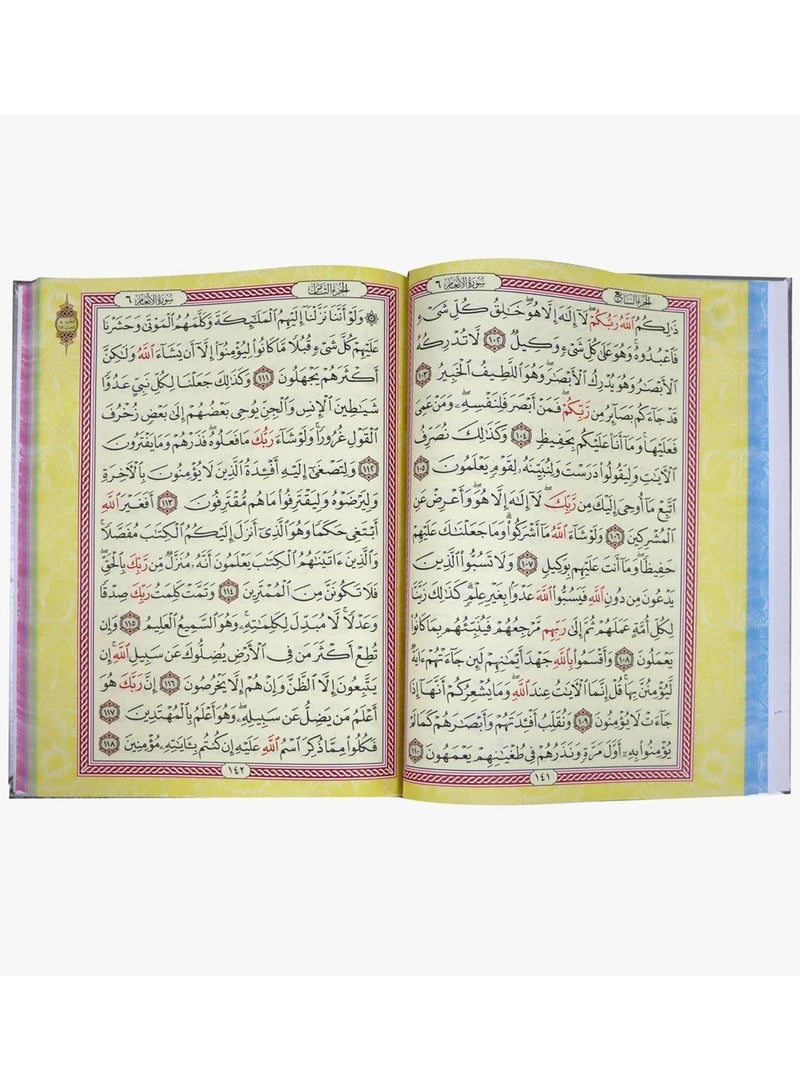 سُورَةُ الأَنعَامِ ٦
الجُزءُ السَّابِعُ
ذَٰلِكُمُ ٱللَّهُ رَبُّكُمۡ لَآ إِلَٰهَ إِلَّا هُوَۖ خَٰلِقُ كُلِّ شَيۡءٖ
فَٱعۡبُدُوهُۚ وَهُوَ عَلَىٰ كُلِّ شَيۡءٖ وَكِيلٞ ١٠٢ لَّا تُدۡرِكُهُ
ٱلۡأَبۡصَٰرُ وَهُوَ يُدۡرِكُ ٱلۡأَبۡصَٰرَۖ وَهُوَ ٱللَّطِيفُ ٱلۡخَبِيرُ ١٠٣
قَدۡ جَآءَكُم بَصَآئِرُ مِن رَّبِّكُمۡۖ فَمَنۡ أَبۡصَرَ فَلِنَفۡسِهِۦۖ وَمَنۡ عَمِيَ
فَعَلَيۡهَاۚ وَمَآ أَنَا۠ عَلَيۡكُم بِحَفِيظٖ ١٠٤ وَكَذَٰلِكَ نُصَرِّفُ
ٱلۡأٓيَٰتِ وَلِيَقُولُواْ دَرَسۡتَ وَلِنُبَيِّنَهُۥ لِقَوۡمٖ يَعۡلَمُونَ ١٠٥
ٱتَّبِعۡ مَآ أُوحِيَ إِلَيۡكَ مِن رَّبِّكَۖ لَآ إِلَٰهَ إِلَّا هُوَۖ وَأَعۡرِضۡ عَنِ
ٱلۡمُشۡرِكِينَ ١٠٦ وَلَوۡ شَآءَ ٱللَّهُ مَآ أَشۡرَكُواْۗ وَمَا جَعَلۡنَٰكَ عَلَيۡهِمۡ
حَفِيظٗاۖ وَمَآ أَنتَ عَلَيۡهِم بِوَكِيلٖ ١٠٧ وَلَا تَسُبُّواْ ٱلَّذِينَ
يَدۡعُونَ مِن دُونِ ٱللَّهِ فَيَسُبُّواْ ٱللَّهَ عَدۡوَۢا بِغَيۡرِ عِلۡمٖۗ كَذَٰلِكَ زَيَّنَّا
لِكُلِّ أُمَّةٍ عَمَلَهُمۡ ثُمَّ إِلَىٰ رَبِّهِم مَّرۡجِعُهُمۡ فَيُنَبِّئُهُم بِمَا كَانُواْ
يَعۡمَلُونَ ١٠٨ وَأَقۡسَمُواْ بِٱللَّهِ جَهۡدَ أَيۡمَٰنِهِمۡ لَئِن جَآءَتۡهُمۡ ءَايَةٞ
لَّيُؤۡمِنُنَّ بِهَاۚ قُلۡ إِنَّمَا ٱلۡأٓيَٰتُ عِندَ ٱللَّهِۖ وَمَا يُشۡعِرُكُمۡ أَنَّهَآ إِذَا
جَآءَتۡ لَا يُؤۡمِنُونَ ١٠٩ وَنُقَلِّبُ أَفۡـِٔدَتَهُمۡ وَأَبۡصَٰرَهُمۡ كَمَا لَمۡ
يُؤۡمِنُواْ بِهِۦٓ أَوَّلَ مَرَّةٖ وَنَذَرُهُمۡ فِي طُغۡيَٰنِهِمۡ يَعۡمَهُونَ ١١٠
١٤١
الجُزءُ الثَّامِنُ
سُورَةُ الأَنعَامِ ٦
۞ وَلَوۡ أَنَّنَا نَزَّلۡنَآ إِلَيۡهِمُ ٱلۡمَلَٰٓئِكَةَ وَكَلَّمَهُمُ ٱلۡمَوۡتَىٰ وَحَشَرۡنَا
عَلَيۡهِمۡ كُلَّ شَيۡءٖ قُبُلٗا مَّا كَانُواْ لِيُؤۡمِنُوٓاْ إِلَّآ أَن يَشَآءَ ٱللَّهُ وَلَٰكِنَّ
أَكۡثَرَهُمۡ يَجۡهَلُونَ ١١١ وَكَذَٰلِكَ جَعَلۡنَا لِكُلِّ نَبِيٍّ عَدُوّٗا
شَيَٰطِينَ ٱلۡإِنسِ وَٱلۡجِنِّ يُوحِي بَعۡضُهُمۡ إِلَىٰ بَعۡضٖ زُخۡرُفَ
ٱلۡقَوۡلِ غُرُورٗاۚ وَلَوۡ شَآءَ رَبُّكَ مَا فَعَلُوهُۖ فَذَرۡهُمۡ وَمَا يَفۡتَرُونَ
١١٢ وَلِتَصۡغَىٰٓ إِلَيۡهِ أَفۡـِٔدَةُ ٱلَّذِينَ لَا يُؤۡمِنُونَ بِٱلۡأٓخِرَةِ
وَلِيَرۡضَوۡهُ وَلِيَقۡتَرِفُواْ مَا هُم مُّقۡتَرِفُونَ ١١٣ أَفَغَيۡرَ ٱللَّهِ
أَبۡتَغِي حَكَمٗا وَهُوَ ٱلَّذِيٓ أَنزَلَ إِلَيۡكُمُ ٱلۡكِتَٰبَ مُفَصَّلٗاۚ
وَٱلَّذِينَ ءَاتَيۡنَٰهُمُ ٱلۡكِتَٰبَ يَعۡلَمُونَ أَنَّهُۥ مُنَزَّلٞ مِّن رَّبِّكَ بِٱلۡحَقِّۖ
فَلَا تَكُونَنَّ مِنَ ٱلۡمُمۡتَرِينَ ١١٤ وَتَمَّتۡ كَلِمَتُ رَبِّكَ صِدۡقٗا
وَعَدۡلٗاۚ لَّا مُبَدِّلَ لِكَلِمَٰتِهِۦۚ وَهُوَ ٱلسَّمِيعُ ٱلۡعَلِيمُ ١١٥ وَإِن
تُطِعۡ أَكۡثَرَ مَن فِي ٱلۡأَرۡضِ يُضِلُّوكَ عَن سَبِيلِ ٱللَّهِۚ إِن
يَتَّبِعُونَ إِلَّا ٱلظَّنَّ وَإِنۡ هُمۡ إِلَّا يَخۡرُصُونَ ١١٦ إِنَّ رَبَّكَ هُوَ
أَعۡلَمُ مَن يَضِلُّ عَن سَبِيلِهِۦۖ وَهُوَ أَعۡلَمُ بِٱلۡمُهۡتَدِينَ ١١٧
فَكُلُواْ مِمَّا ذُكِرَ ٱسۡمُ ٱللَّهِ عَلَيۡهِ إِن كُنتُم بِـَٔايَٰتِهِۦ مُؤۡمِنِينَ ١١٨
١٤٢